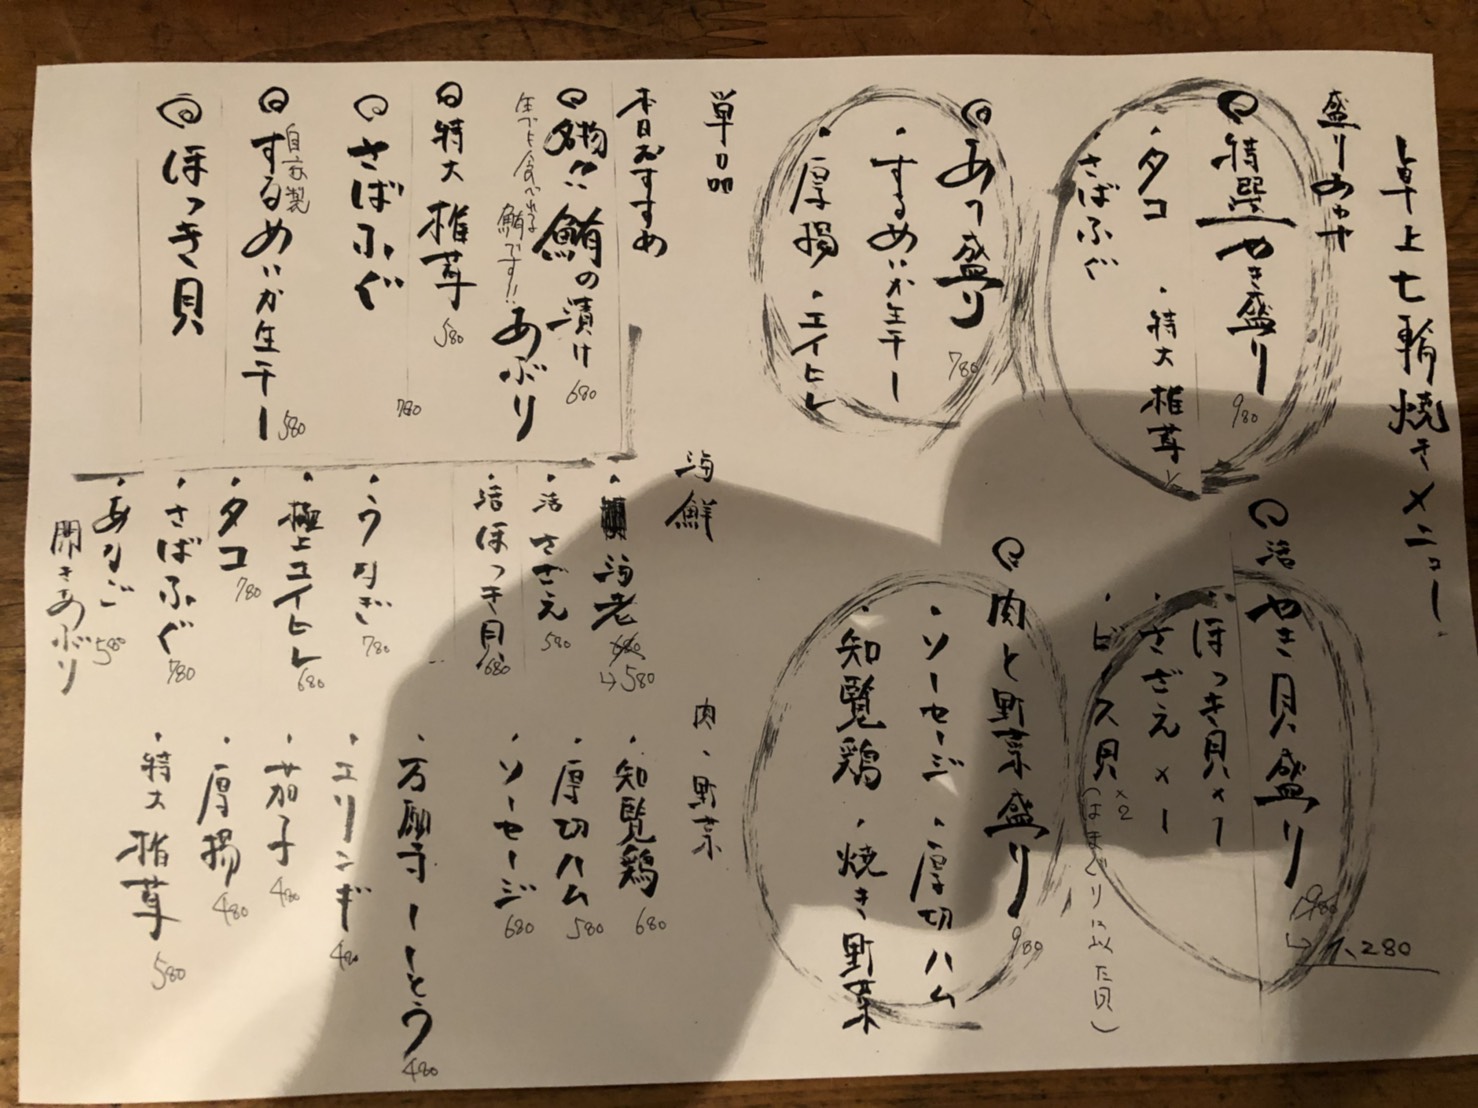 卓上七輪焼きメニュー
盛りあわせ
特選やき盛り 980
・タコ ・特大椎茸½
・さばふぐ
活やき貝盛り 1,280
・ほっき貝×1
・さざえ×1
・ビノス貝×2
(はまぐりに似た貝)
あて盛り 780
・するめいか生干し
・厚揚 ・エイヒレ
肉と野菜盛り 980
・ソーセージ ・厚切ハム
・知覧鶏 ・焼き野菜
単品
本日おすすめ
名物!! 鮪の漬け
あぶり 680
生でも食べれる鮪です!!
特大椎茸 580
さばふぐ 780
自家製
するめいか生干し 580
ほっき貝
海鮮
・海老 680→580
・活さざえ 580
・活ほっき貝 680
・うなぎ 780
・極上エイヒレ 680
・タコ 780
・さばふぐ 780
・あなご 580
開きあぶり
肉・野菜
・知覧鶏 680
・厚切ハム 580
・ソーセージ 680
・万願寺しとう 480
・エリンギ 480
・茄子 480
・厚揚 480
・特大椎茸 580